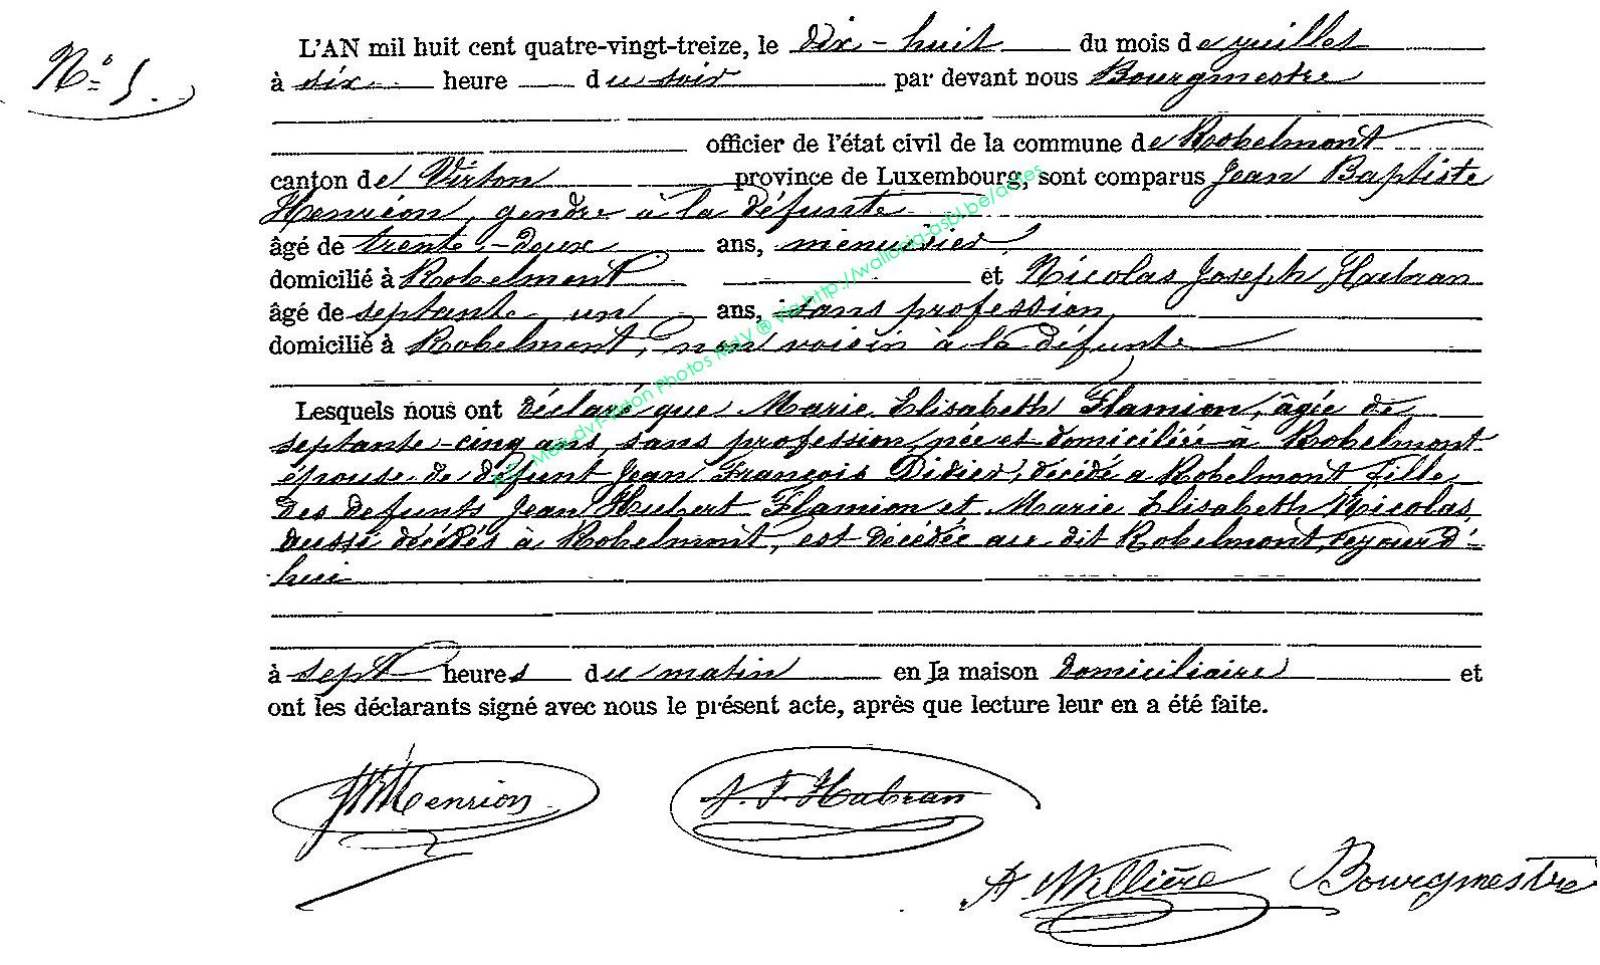 N° 5.
L'AN mil huit cent quatre-vingt-treize, le dix-huit du mois de juillet
à six heure du soir par devant nous Bourgmestre
officier de l'état civil de la commune de Robelmont
canton de Virton province de Luxembourg, sont comparus Jean Baptiste
Henrion, gendre à la défunte
âgé de trente-deux ans, menuisier
domicilié à Robelmont et Nicolas Joseph Habran
âgé de septante un ans, sans profession
domicilié à Robelmont, non voisin à la défunte
Lesquels nous ont déclaré que Marie Elisabeth Flamion, âgée de
septante-cinq ans, sans profession, née et domiciliée à Robelmont
épouse de défunt Jean François Didier, décédé a Robelmont fille
des defunts Jean Hubert Flamion et Marie Elisabeth Nicolas
aussi décédés à Robelmont, est décédée au dit Robelmont, cejourd'
hui
à sept heures du matin en la maison domiciliaire et
ont les déclarants signé avec nous le présent acte, après que lecture leur en a été faite.
Henrion Habran
Bourgmestre
Photos MdV ® via http://wallonia-asbl.be/actes